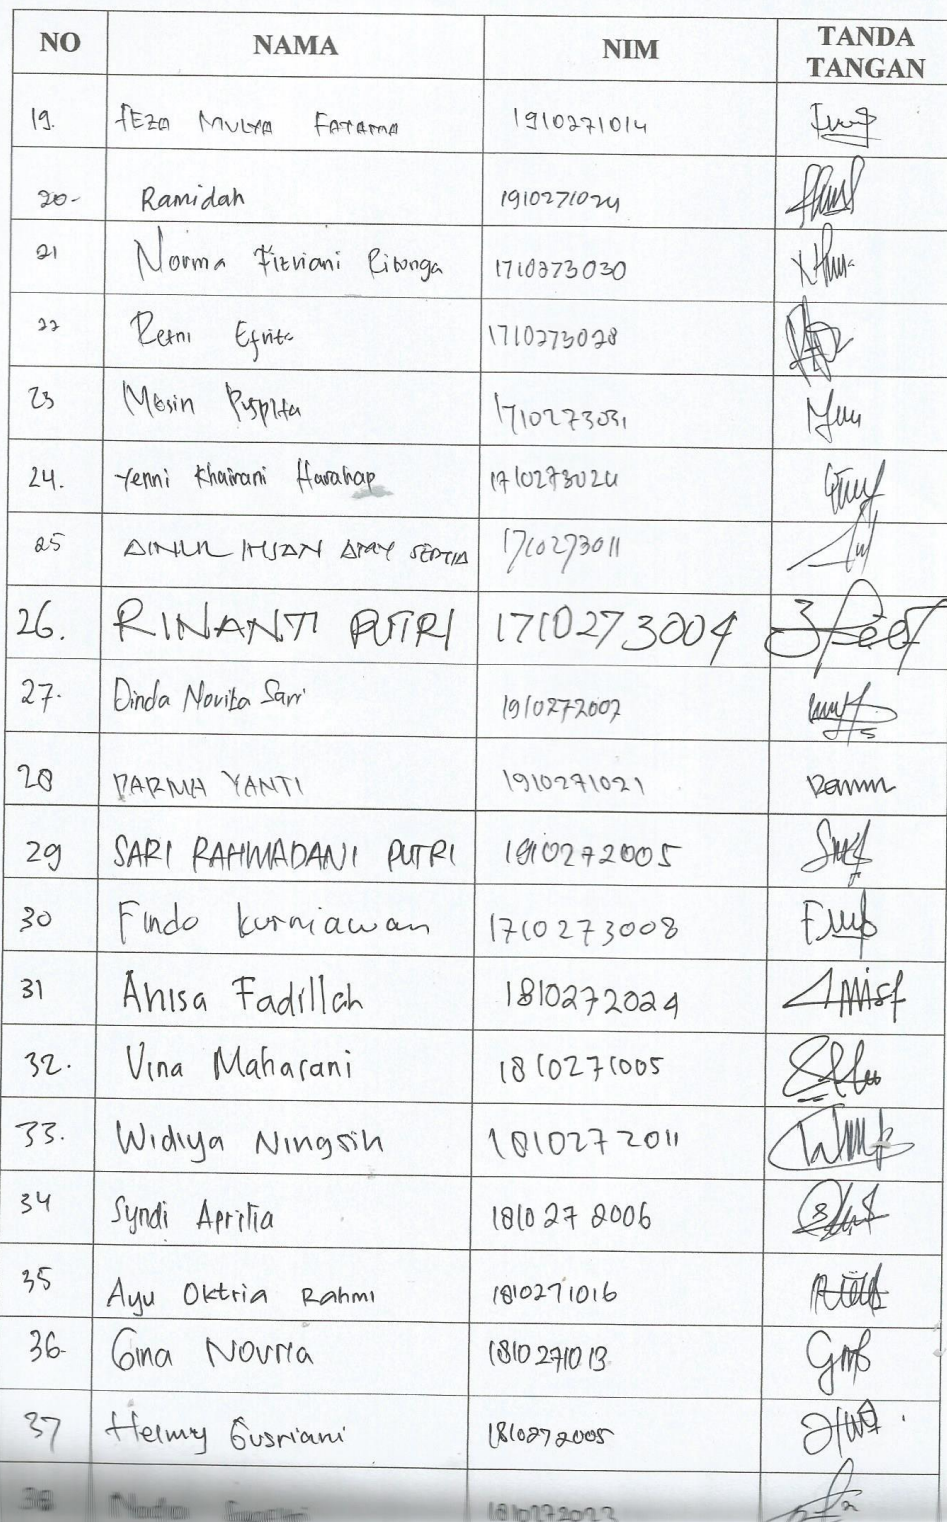 NO NAMA NIM TANDA TANGAN
19. FEZA MULYA FATAMA 1910271014
20- Ramidah 1910271024
21 Norma Fitriani Ritonga 1710273030
22 Retni Efrita 1710273028
23 Mesin Puspita 1710273031
24. Yenni Khairani Harahap 1710273024
25 AINUL IHSAN 1710273011
26. RINANTI PUTRI 1710273004
27. Dinda Novita Sari 1910272007
28 DARMA YANTI 1910271021
29 SARI RAHMADANI PUTRI 1910272005
30 Findo kurniawan 1710273008
31 Anisa Fadillah 1810272024
32. Vina Maharani 1810271005
33. Widiya Ningsih 1810272011
34 Syndi Aprilia 1810272006
35 Ayu Oktria Rahmi 1810271016
36- Gina Novria 1810271013
37 Helmy Gusriani 1810272005
38 1810272023